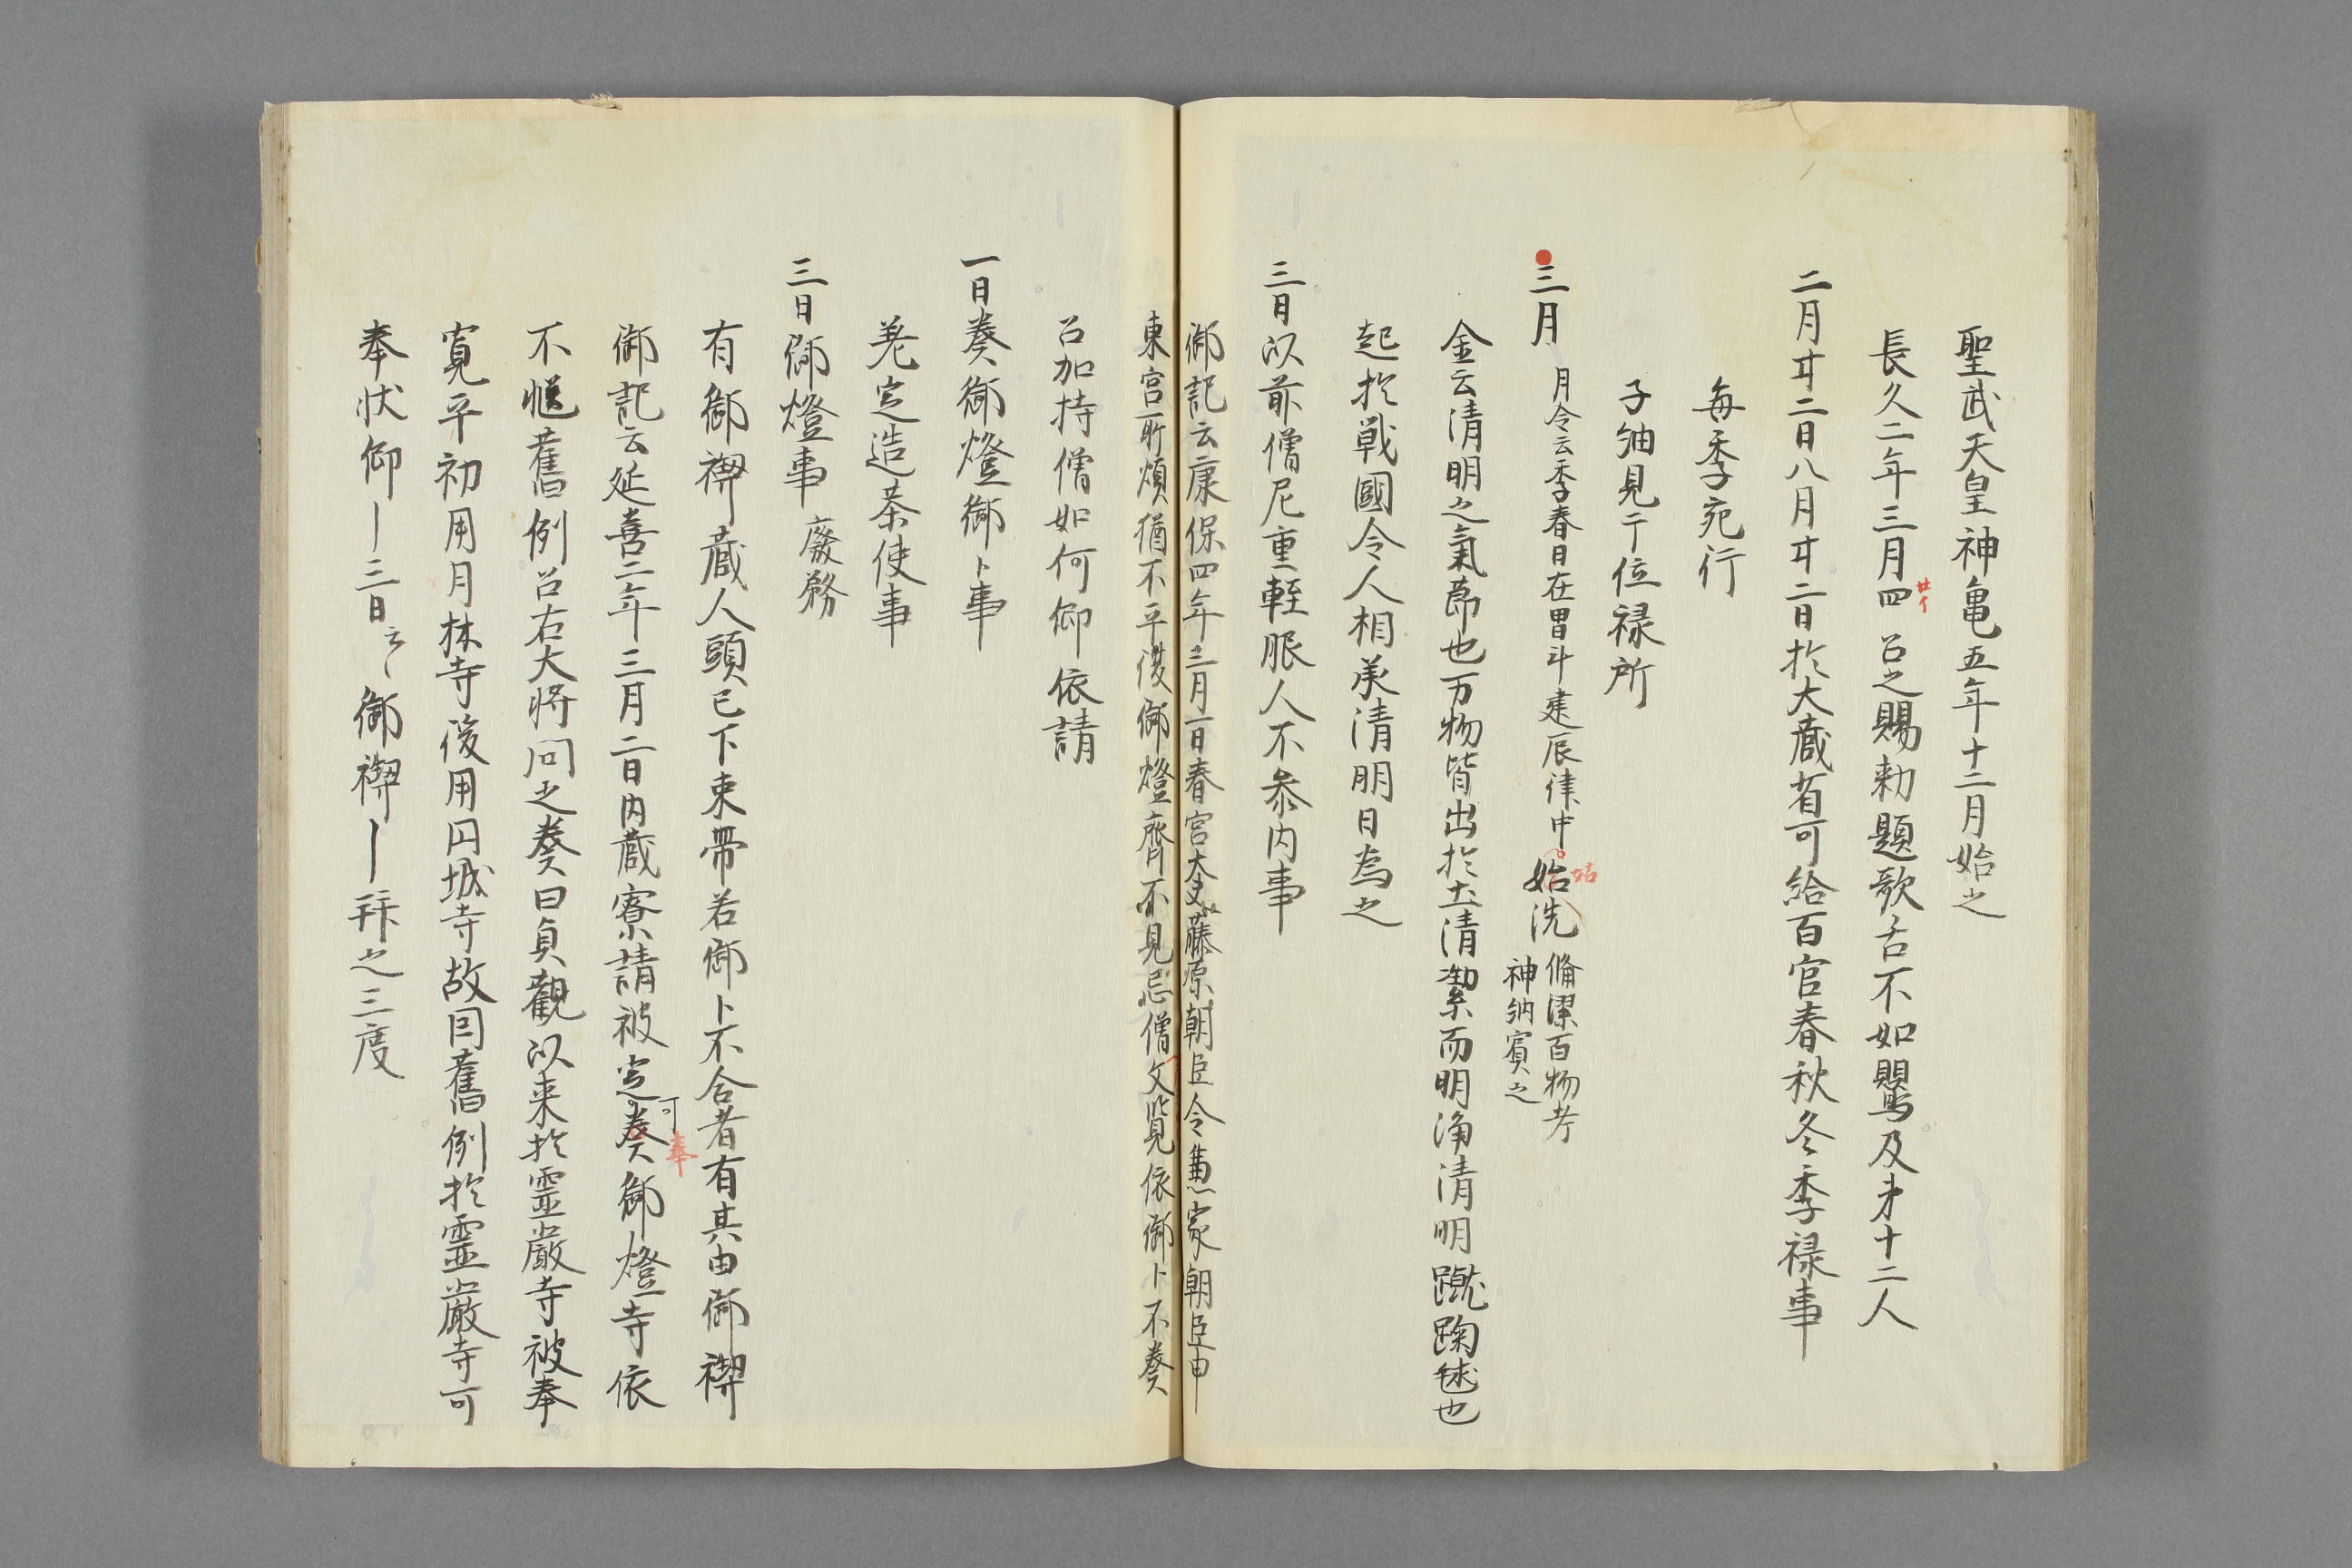 聖武天皇神亀五年十二月始之
長久二年三月四召之賜勅題歌舌不如鸎及才十二人
廿イ
二月廿二日八月廿二日於大蔵省可給百官春秋冬季禄事
毎季宛行
子細見于位禄所
三月
月令云季春日在胃斗建辰律中
姑
始洗
脩潔百物考
神納賓之
金云清明之氣節也万物皆出於土清潔而明浄清明蹴鞠毬也
起於戦國令人相承清明日為之
三日以前僧尼重軽服人不参内事
御記云康保四年三月一日春宮大夫藤原朝臣令兼家朝臣申
東宮所煩猶不平復御燈齊不見忌僧文覧依御卜不奏
召加持僧如何仰依請
一日奏御燈御卜事
差定造茶使事
三日御燈事廢務
有御禊蔵人頭已下束帯若御卜不合者有其由御禊
御記云延喜二年三月二日内蔵寮請被定奏御燈寺依
可
奉
不愜舊例召右大将問之奏曰貞觀以来於霊巌寺被奉
寛平初用月林寺後用円城寺故因舊例於霊巌寺可
奉状仰〡三日云〻御禊〡拝之三度